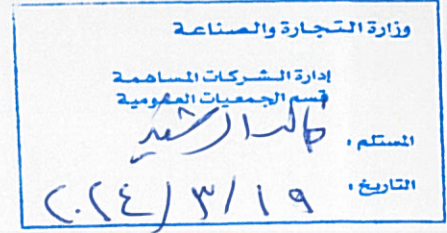 وزارة التجارة والصناعة
إدارة الشركات المساهمة
قسم الجمعيات العمومية
المستلم : خالد الرشيد
التاريخ : ٢٠٢٤/٣/١٩